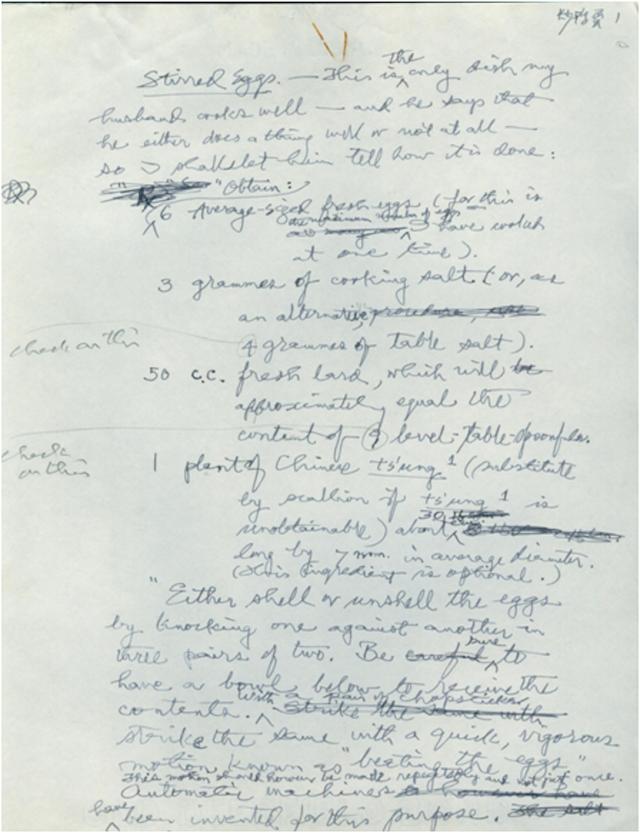 炒鷄蛋 1
Stirred Eggs. — This is the only dish my
husband cooks well — and he says that
he either does a thing well or not at all —
so I shall let him tell how it is done:
"Obtain:
6 Average-sized fresh eggs (for this is
the maximum number of eggs I have worked
at one time).
3 grammes of cooking salt (or, as
an alternative, procedure,
check on this
4 grammes of table salt).
50 c.c. fresh lard, which will be
approximately equal the
content of 4 level-table-spoonfuls.
check
on this
1 plant of Chinese ts'ung¹ (substitute
by scallion if ts'ung¹ is
unobtainable) about 30
long by 7 mm. in average diameter.
(This ingredient is optional.)
"Either shell or unshell the eggs
by knocking one against another in
three pairs of two. Be careful sure to
have a bowl below to receive the
contents. With a pair of chopsticks, Strike the same with
strike the same with a quick, vigorous
motion known as "beating the eggs"
This motion should however be made repeatedly and not just once.
Automatic machines have
been invented for this purpose. The salt